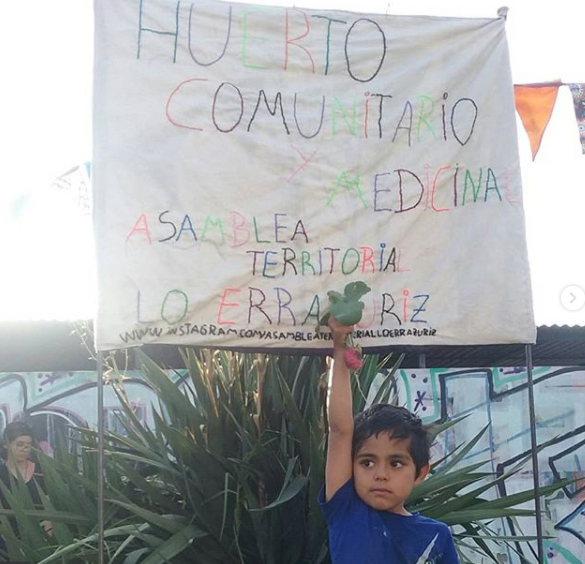 HUERTO
COMUNITARIO
Y
MEDICINAL
ASAMBLEA
TERRITORIAL
LO ERRAZURIZ
WWW.INSTAGRAM.COM/ASAMBLEATERRITORIALLOERRAZURIZ